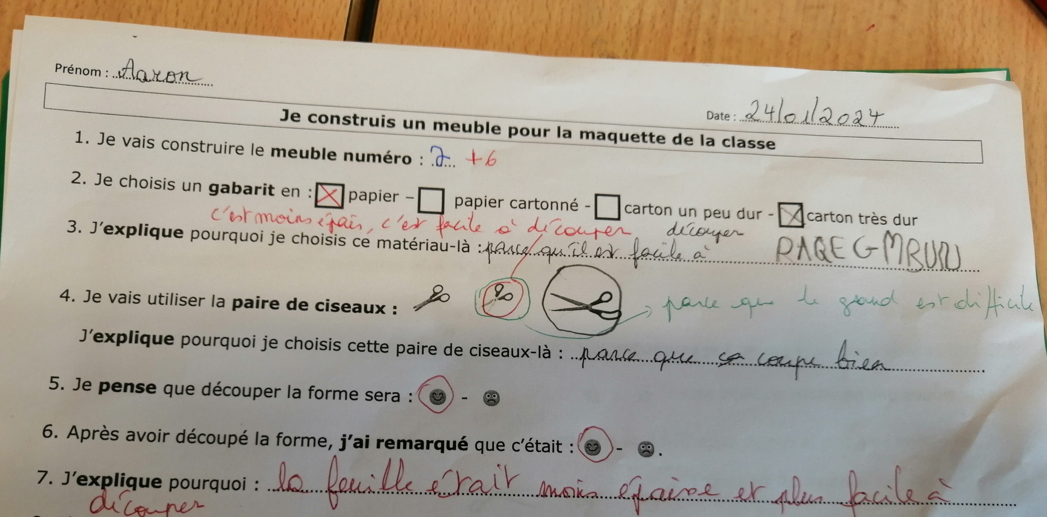 Prénom : Aaron
Date : 24/01/2024
Je construis un meuble pour la maquette de la classe
1. Je vais construire le meuble numéro : 7 +6
2. Je choisis un gabarit en : papier - papier cartonné - carton un peu dur - carton très dur
c'est moins épais, c'est facile à découper découper
3. J'explique pourquoi je choisis ce matériau-là : parce qu'il est facile à
4. Je vais utiliser la paire de ciseaux : parce que le grand est difficile
J'explique pourquoi je choisis cette paire de ciseaux-là : parce que sa coupe bien
5. Je pense que découper la forme sera : -
6. Après avoir découpé la forme, j'ai remarqué que c'était : - .
7. J'explique pourquoi : la feuille était mois épaisse et plus facile à
découper